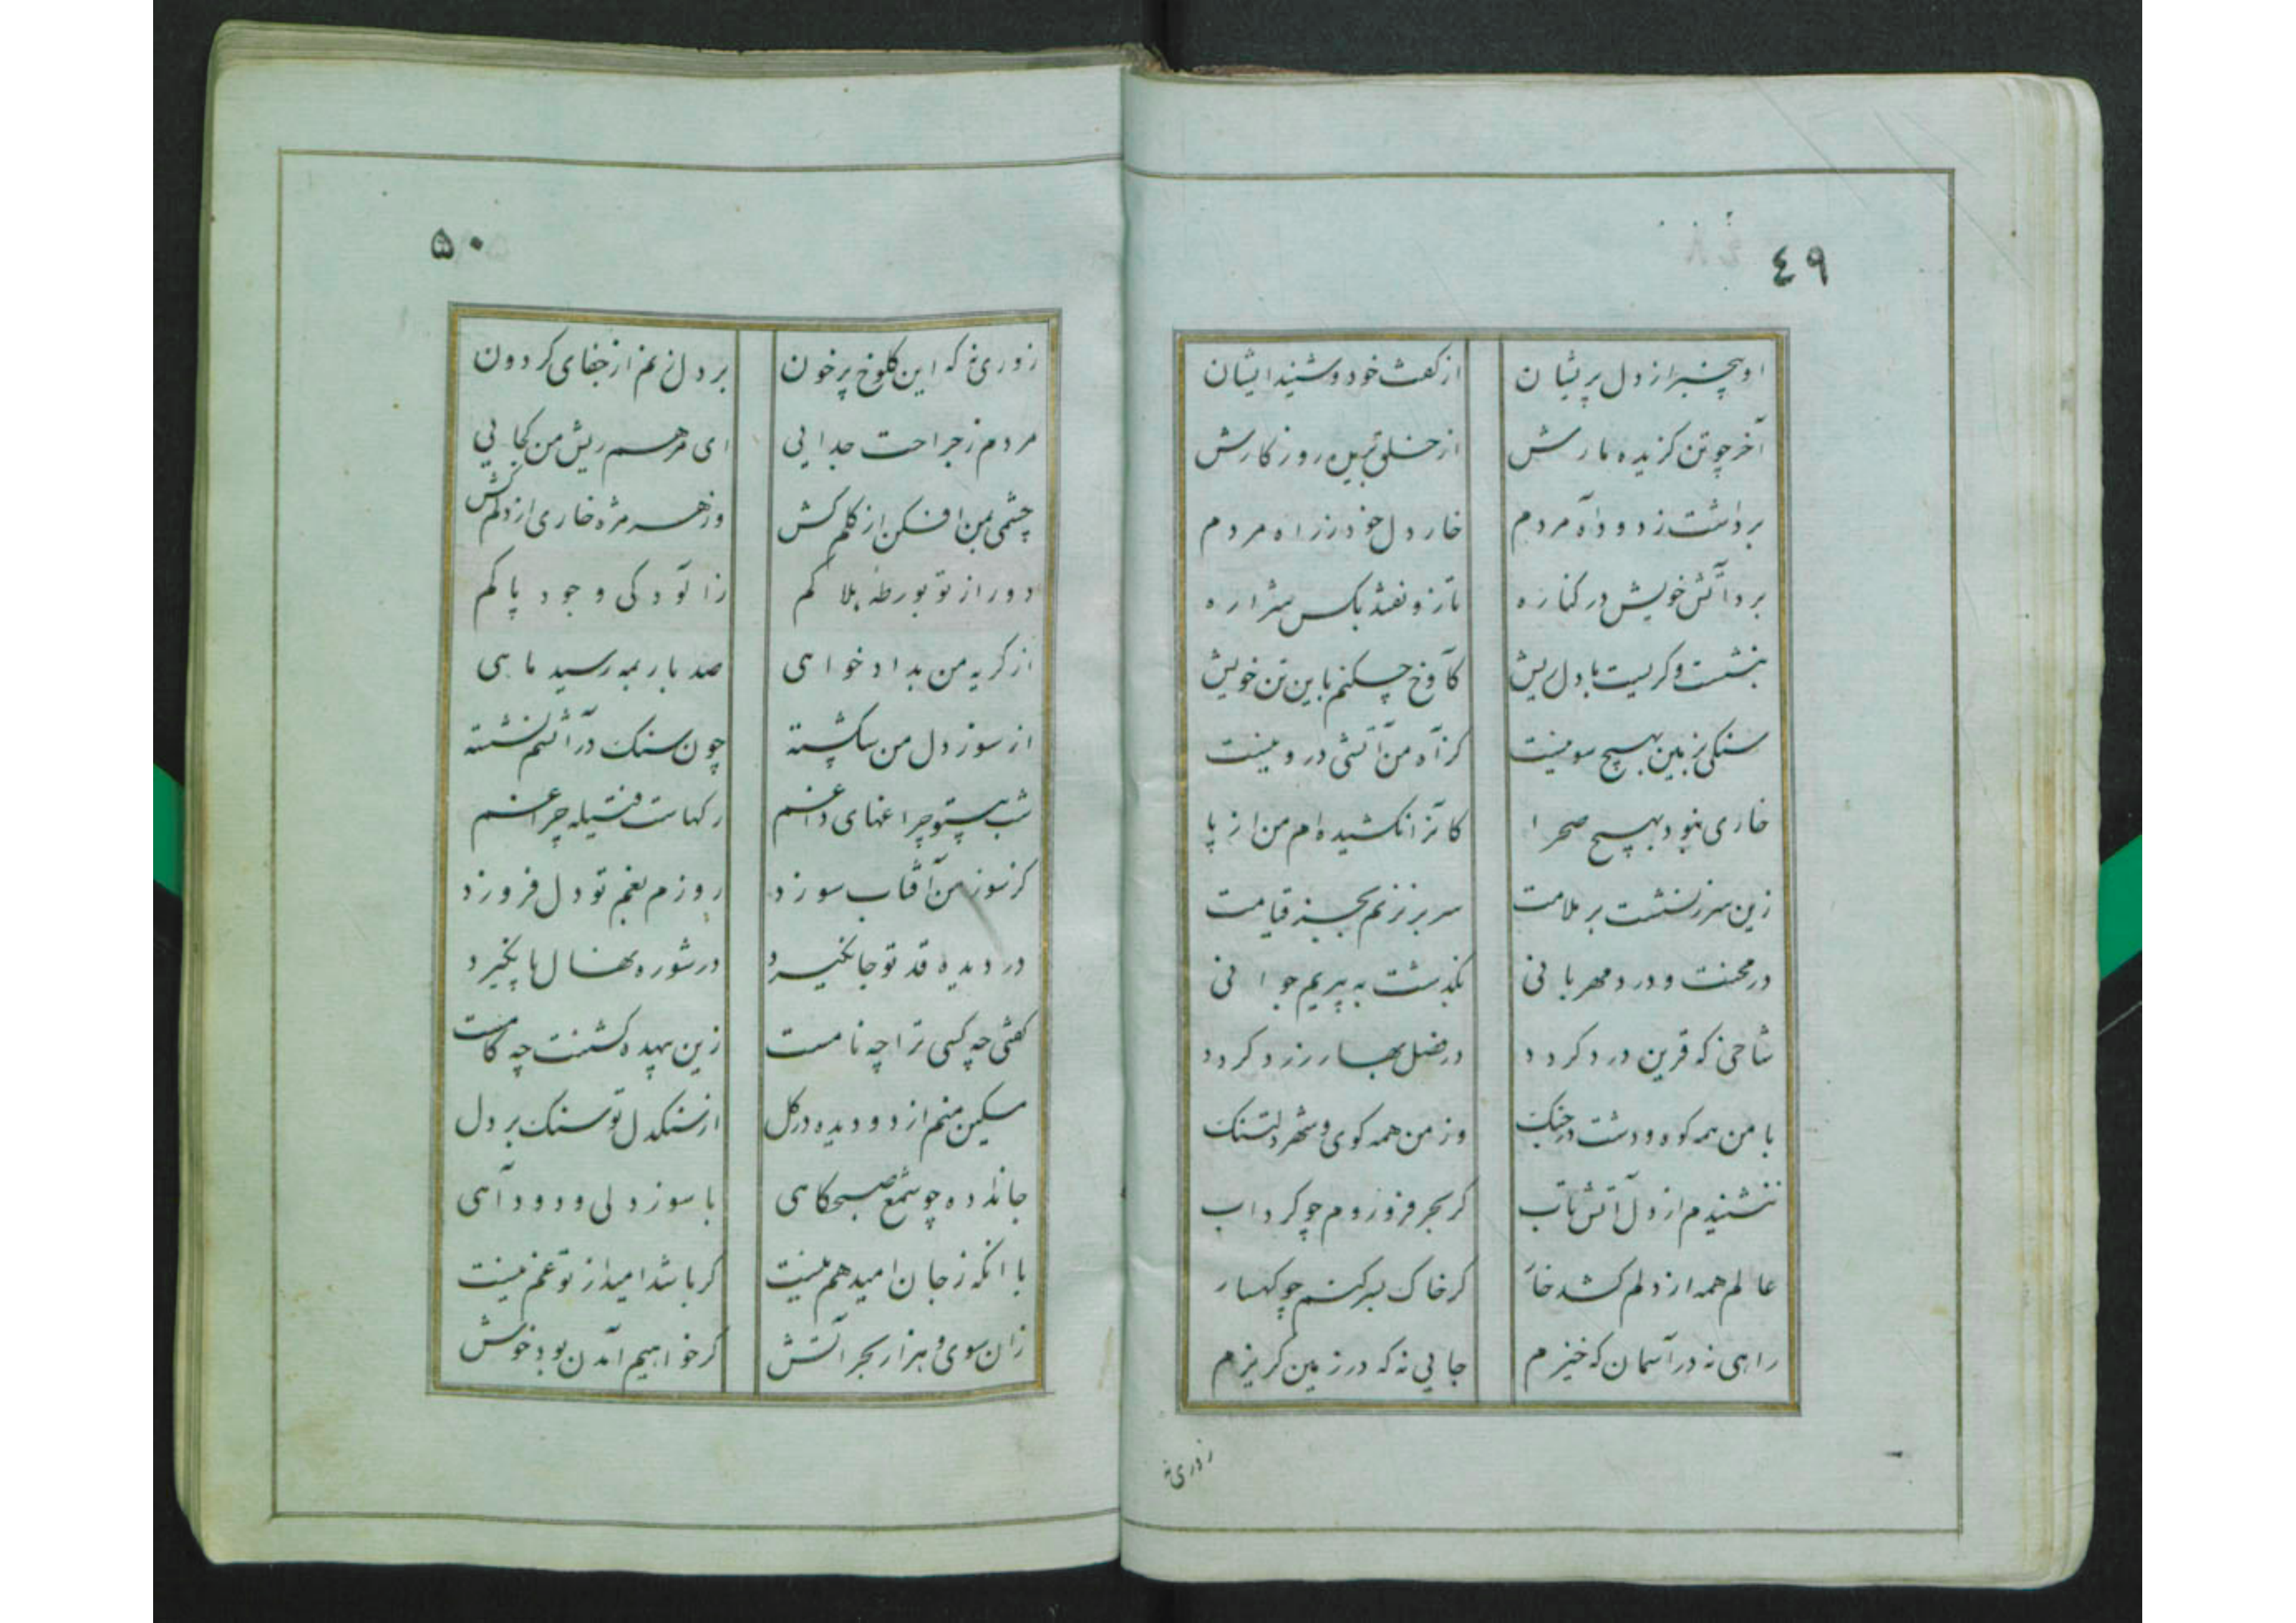 ٤٩
او بیخبر از دل پریشان از کفت خود و شنید ایشان
آخر چو تن کزیده مارش از خلق برید روزکارش
برداشت ز دود آه مردم خار دل خود ز راه مردم
برد آتش خویش در کناره تا زو نفتد بکس شراره
بنشست و کریست با دل ریش کآوخ چکنم باین تن خویش
سنکی بزمین بهیچ سو نیست کز آه من آتشی درو نیست
خاری نبود بهیچ صحرا کانرا نکشیده‌ام من از پا
زین سرزنشت بر ملامت سر بر نزنم بجز قیامت
در محنت و درد مهربانی بکذشت به پیریم جوانی
شاخی که قرین درد کردد در فصل بهار زرد کردد
با من همه کوه و دشت در جنک وز من همه کوی و شهر دلتنک
ننشیندم از دل آتش تاب کر بحر فرو روم چو کرداب
عالم همه از دلم کشد خار کر خاک بسر کنم چو کهسار
راهی نه در آسمان که خیزم جایی نه که در زمین کریزم
زوری نه
۵۰
زوری نه که این کلوخ پرخون بر دل نهم از جفای کردون
مردم ز جراحت جدایی ای مرهم ریش من کجایی
چشمی بمن افکن از کلم کش وز هر مژه خاری از دلم کش
دور از تو بورطهٔ بلا کم زآلودکی وجود پاکم
از کریه من بدادخواهی صد بار بمه رسید ماهی
از سوز دل من شکسته چون سنک در آتشم نشسته
شب بیتو چراغهای داغم رکهاست فتیله چراغم
کز سوز من آفتاب سوزد روزم بغم تو دل فروزد
در دیده قد تو جا نکیرد در شوره نهال پا نکیرد
کفتی چه کسی ترا چه نامست زین بیهده کشتنت چه کامست
مسکین منم از دو دیده در کل از سنکدل تو سنک بر دل
جانداده چو شمع صبحکاهی با سوز دلی و دود آهی
با انکه ز جان امید هم نیست کر باشد امید از تو غم نیست
زان سوی هزار بحر آتش کر خواهیم آمدن بود خوش